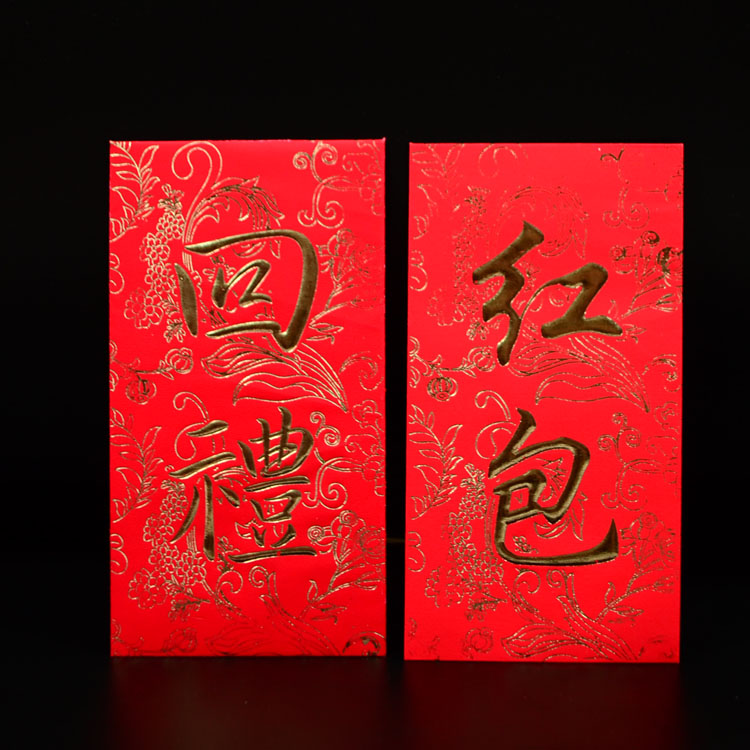 回禮
红包